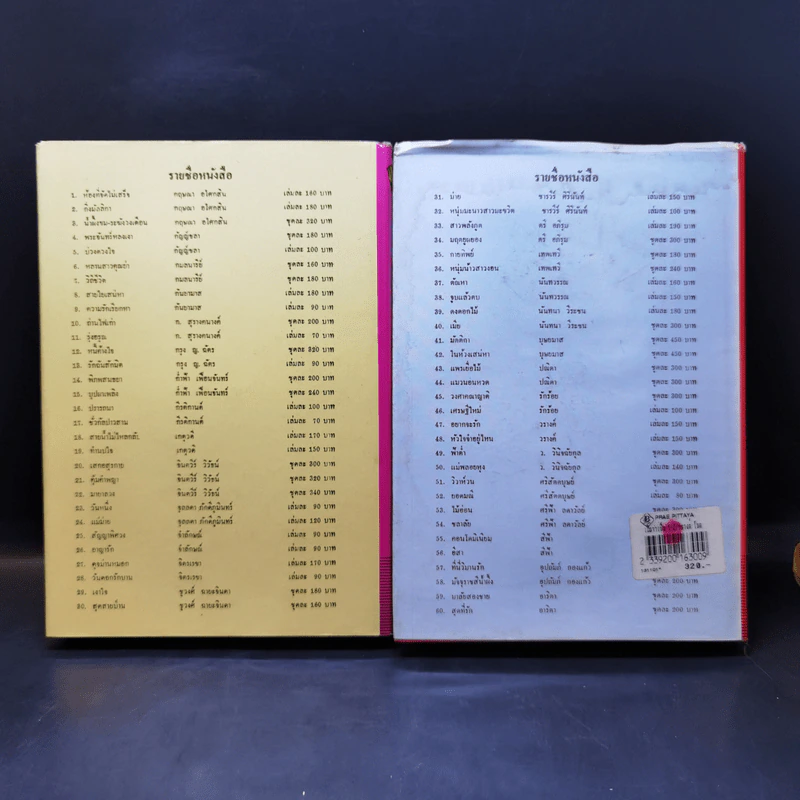 รายชื่อหนังสือ
1. ห้องที่จัดไม่เสร็จ กฤษณา อโศกสิน เล่มละ 160 บาท
2. กิ่งมัลลิกา กฤษณา อโศกสิน เล่มละ 150 บาท
3. น้ำผึ้งขม-ระฆังวงเดือน กฤษณา อโศกสิน ชุดละ 320 บาท
4. พระจันทร์หลงเงา กัญญ์ชลา ชุดละ 180 บาท
5. บ่วงดวงใจ กัญญ์ชลา เล่มละ 100 บาท
6. หลงนสาวคุณย่า กมลนารีย์ ชุดละ 160 บาท
7. วิถีชีวิต กมลนารีย์ ชุดละ 180 บาท
8. สายใยเสน่หา กันยามาส เล่มละ 180 บาท
9. ความรักเรียกหา กันยามาส เล่มละ 90 บาท
10. ก. สุรางคนางค์ ชุดละ 200 บาท
11. รุ่งอรุณ ก. สุรางคนางค์ เล่มละ 70 บาท
12. หนี้ค้างใจ กรุง ญ. ฉัตร ชุดละ 320 บาท
13. รักฉันสักนิด กรุง ญ. ฉัตร เล่มละ 90 บาท
14. พิภพสนธยา ก่ำฟ้า เพื่อนจันทร์ ชุดละ 200 บาท
15. บุปผาเพลิง ก่ำฟ้า เพื่อนจันทร์ ชุดละ 240 บาท
16. ปรารถนา กิรติกานต์ เล่มละ 100 บาท
17. กิรติกานต์ เล่มละ 70 บาท
18. สายน้ำไม่ไหลกลับ เกตุวดี เล่มละ 170 บาท
19. ห้าแปใจ เกตุวดี เล่มละ 150 บาท
20. เสกอสูรกาย จินตวีร์ วิวัธน์ ชุดละ 300 บาท
21. คุ้มเจ้าพญา จินตวีร์ วิวัธน์ ชุดละ 320 บาท
22. มายาลวง จินตวีร์ วิวัธน์ ชุดละ 340 บาท
23. วันหนึ่ง จุลลดา ภักดีภูมินทร์ เล่มละ 90 บาท
24. แม่ม่าย จุลลดา ภักดีภูมินทร์ เล่มละ 120 บาท
25. สัญญาพิศวง จำลักษณ์ เล่มละ 90 บาท
26. อาญารัก จำลักษณ์ เล่มละ 90 บาท
27. คุณม่านหมอก จิตรเรขา เล่มละ 90 บาท
28. วันดอกรักบาน จิตรเรขา เล่มละ 90 บาท
29. เงาใจ ชูวงศ์ ฉายะจินดา ชุดละ 180 บาท
30. สุดสายป่าน ชูวงศ์ ฉายะจินดา ชุดละ 160 บาท
รายชื่อหนังสือ
31. ม่าย ชารวีร์ ศิรินันท์ เล่มละ 150 บาท
32. หนุ่มมะนาวสาวมะขวิด ชารวีร์ ศิรินันท์ เล่มละ 100 บาท
33. ตรี อภิรุม เล่มละ 150 บาท
34. ตรี อภิรุม ชุดละ 300 บาท
35. กายทิพย์ เทพเทวี เล่มละ 130 บาท
36. หนุ่มน้าวสาวงอน เทพเทวี ชุดละ 240 บาท
37. ตัณหา นันทวรรณ เล่มละ 160 บาท
38. จูบแล้วตบ นันทวรรณ เล่มละ 130 บาท
39. ดงดอกไม้ นันทนา วีระชน เล่มละ 180 บาท
40. เมีย นันทนา วีระชน ชุดละ 300 บาท
41. มัตติกา บุษยมาส ชุดละ 450 บาท
42. ในห้วงเสน่หา บุษยมาส ชุดละ 450 บาท
43. แพรเยื่อไม้ ปณิตา ชุดละ 300 บาท
44. แมวนอนหวด ปณิตา ชุดละ 300 บาท
45. วงศาคณาญาติ รักร้อย ชุดละ 300 บาท
46. เศรษฐีใหม่ รักร้อย ชุดละ 300 บาท
47. อยากจะรัก วรางค์ เล่มละ 150 บาท
48. หัวใจจ๋าอยู่ไหน วรางค์ เล่มละ 150 บาท
49. ฟ้าต่ำ ว. วินิจฉัยกุล ชุดละ 300 บาท
50. แม่พลอยหุง ว. วินิจฉัยกุล เล่มละ 140 บาท
51. วิวาห์วน ศรีสัตตบุษย์ ชุดละ 300 บาท
52. ยอดมณี ศรีสัตตบุษย์ เล่มละ 80 บาท
53. ไม้อ่อน ศรีฟ้า ลดาวัลย์ เล่มละ 90
54. ชลาลัย ศรีฟ้า ลดาวัลย์ ชุดละ
55. คอนโดมิเนียม สีฟ้า
56. ชีสา สีฟ้า
57. ที่นี่วิมานรัก อุปถัมภ์ กองแก้ว
58. มัจจุราชสีน้ำผึ้ง อุปถัมภ์ กองแก้ว เล่มละ 90 บาท
59. มาลัยสองชาย อาริตา ชุดละ 200 บาท
60. สุดที่รัก อาริตา ชุดละ 300 บาท
PRAE PITTAYA
2 339200 163009
320.-